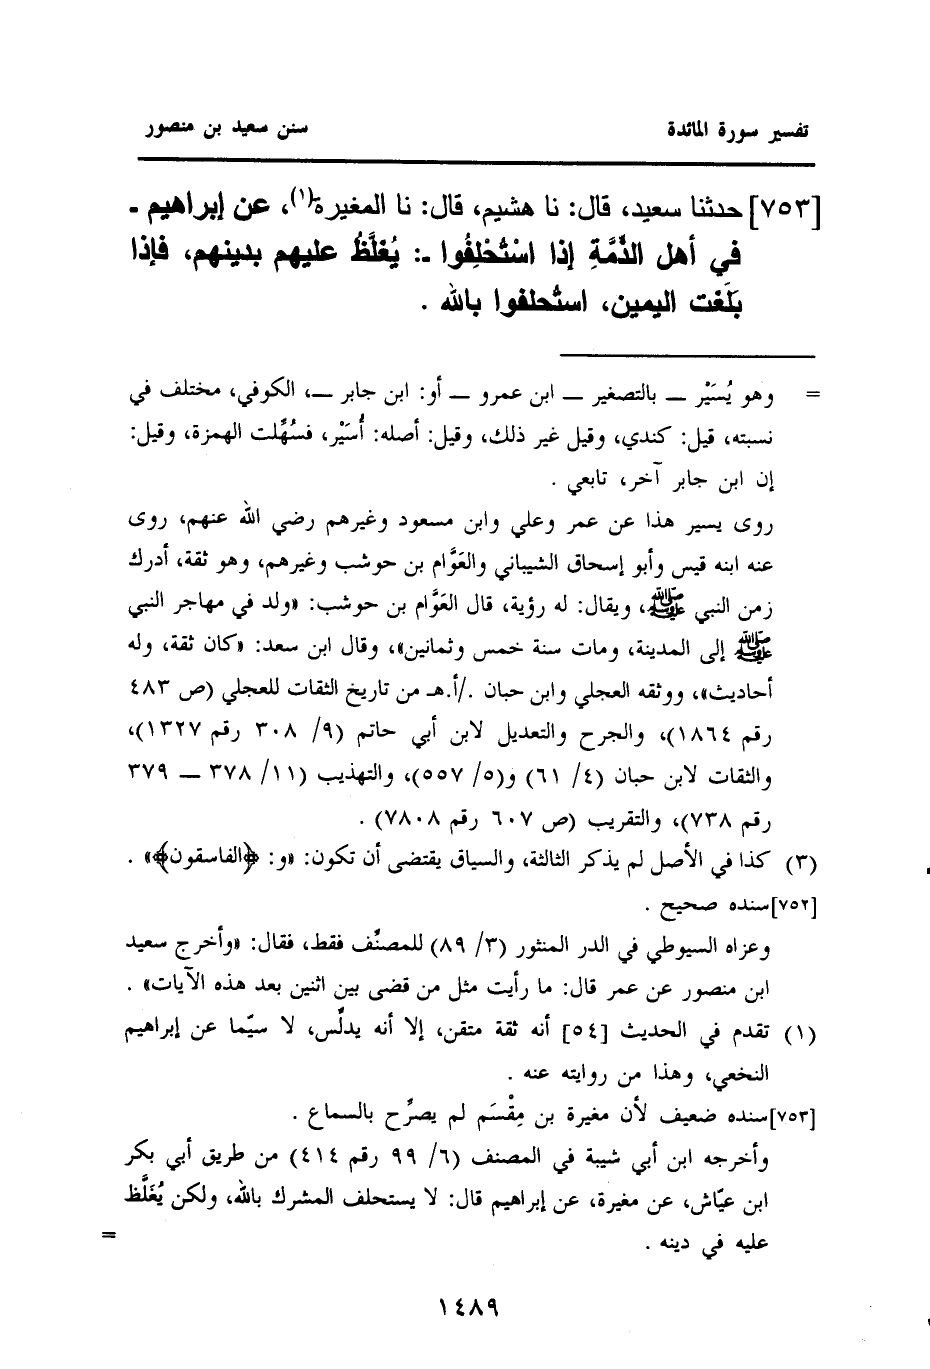 تفسير سورة المائدة
سنن سعيد بن منصور
[٧٥٣] حدثنا سعيد، قال: نا هشيم، قال: نا المغيرة(١)، عن إبراهيم ـ
في أهل الذِّمَّةِ إذا اسْتُحْلِفُوا ـ: يُغلَّظُ عليهم بدينهم، فإذا
بَلَغت اليمين، استُحلفوا بالله .
= وهو يُسَيْر ــ بالتصغير ــ ابن عمرو ــ أو: ابن جابر ــ، الكوفي، مختلف في
نسبته، قيل: كندي، وقيل غير ذلك، وقيل: أصله: أُسَيْر، فسُهِّلت الهمزة، وقيل:
إن ابن جابر آخر، تابعي .
روى يسير هذا عن عمر وعلي وابن مسعود وغيرهم رضي الله عنهم، روى
عنه ابنه قيس وأبو إسحاق الشيباني والعَوَّام بن حوشب وغيرهم، وهو ثقة، أدرك
زمن النبي ﷺ، ويقال: له رؤية، قال العَوَّام بن حوشب: «ولد في مهاجر النبي
ﷺ إلى المدينة، ومات سنة خمس وثمانين»، وقال ابن سعد: «كان ثقة، وله
أحاديث»، ووثقه العجلي وابن حبان ./أ.هـ من تاريخ الثقات للعجلي (ص ٤٨٣
رقم ١٨٦٤)، والجرح والتعديل لابن أبي حاتم (٩/ ٣٠٨ رقم ١٣٢٧)،
والثقات لابن حبان (٤/ ٦١) و(٥/ ٥٥٧)، والتهذيب (١١/ ٣٧٨ ــ ٣٧٩
رقم ٧٣٨)، والتقريب (ص ٦٠٧ رقم ٧٨٠٨) .
(٣) كذا في الأصل لم يذكر الثالثة، والسياق يقتضي أن تكون: «و: ﴿الفاسقون﴾» .
[٧٥٢] سنده صحيح .
وعزاه السيوطي في الدر المنثور (٣/ ٨٩) للمصنِّف فقط، فقال: «وأخرج سعيد
ابن منصور عن عمر قال: ما رأيت مثل من قضى بين اثنين بعد هذه الآيات» .
(١) تقدم في الحديث [٥٤] أنه ثقة متقن، إلا أنه يدلِّس، لا سيّما عن إبراهيم
النخعي، وهذا من روايته عنه .
[٧٥٣] سنده ضعيف لأن مغيرة بن مِقْسَم لم يصرِّح بالسماع .
وأخرجه ابن أبي شيبة في المصنف (٦/ ٩٩ رقم ٤١٤) من طريق أبي بكر
ابن عيّاش، عن مغيرة، عن إبراهيم قال: لا يستحلف المشرك بالله، ولكن يُغَلَّظ
عليه في دينه . =
١٤٨٩